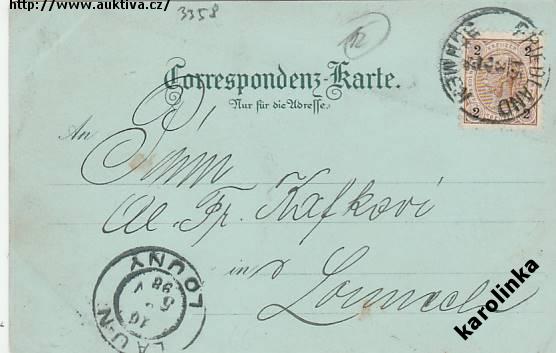 http://www.auktiva.cz/
3358
12
Correspondenz-Karte.
Nur für die Adresse.
An
Al. Fr. Kafkovi
in
2 2
2 2
FRIEDLAND
LAUN
LOUNY
16
5
V
98
karolinka